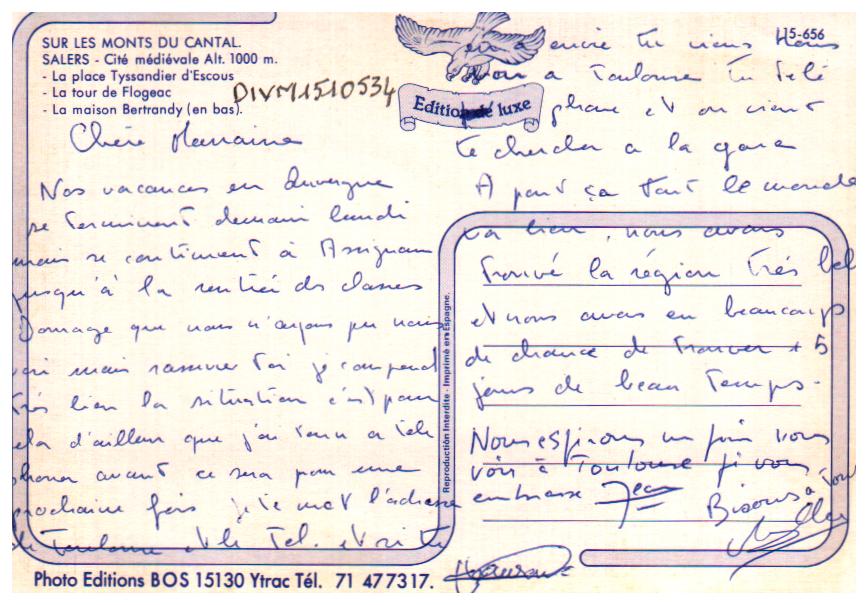 SUR LES MONTS DU CANTAL.
SALERS - Cité médiévale Alt. 1000 m.
- La place Tyssandier d'Escous
- La tour de Flogeac
- La maison Bertrandy (en bas).
DIVM1510534
Edition de luxe
15-656
Chère Marraine
Nos vacances en Auvergne
se terminent demain lundi
mais se continuent à Assignan
jusqu'à la rentrée ds classes
Domage que nous n'ayons pu nous
voir mais rassurer toi je comprend
très bien la situation c'est pour
cela d'ailleur que j'ai tenu a télé
phoner avant ce sera pour une
prochaine fois je te met l'adresse
de Toulouse et le Tel. et si te
en a envie tu viens nous
voir a Toulouse tu télé
phone et on vient
te chercher a la gare
A part ça tout le monde
va bien, nous avons
trouvé la région très bel
et nous avons eu beaucoup
de chance de trouver + 5
jours de beau temps.
Nous espérons un jour vous
voir à Toulouse je vous
embrasse Jean
Bisous à
Reproduction Interdite - Imprimé en Espagne.
Photo Editions BOS 15130 Ytrac Tél. 71 477317.